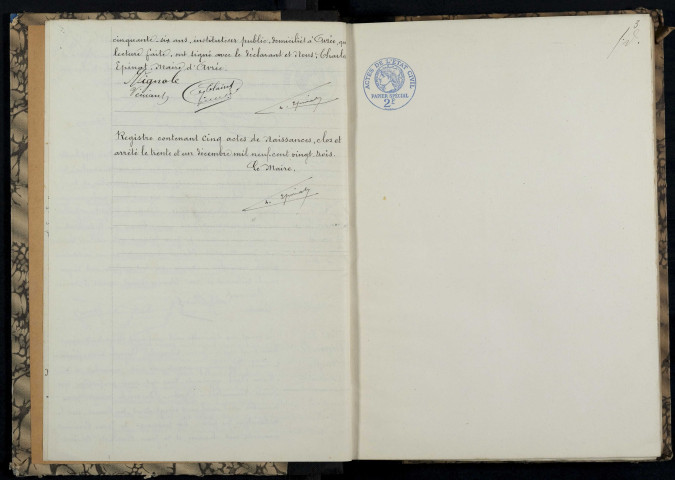 cinquante-six ans, instituteur public, domiciliés à Avrée, qui
lecture faite, ont signé avec le déclarant et Nous, Charles
Epinat, Maire d'Avrée.
Mignole
Registre contenant Cinq actes de Naissances, clos et
arrêté le trente et un décembre mil neuf cent vingt-trois.
Le Maire,
ACTES DE L'ETAT CIVIL
PAPIER SPECIAL
2F